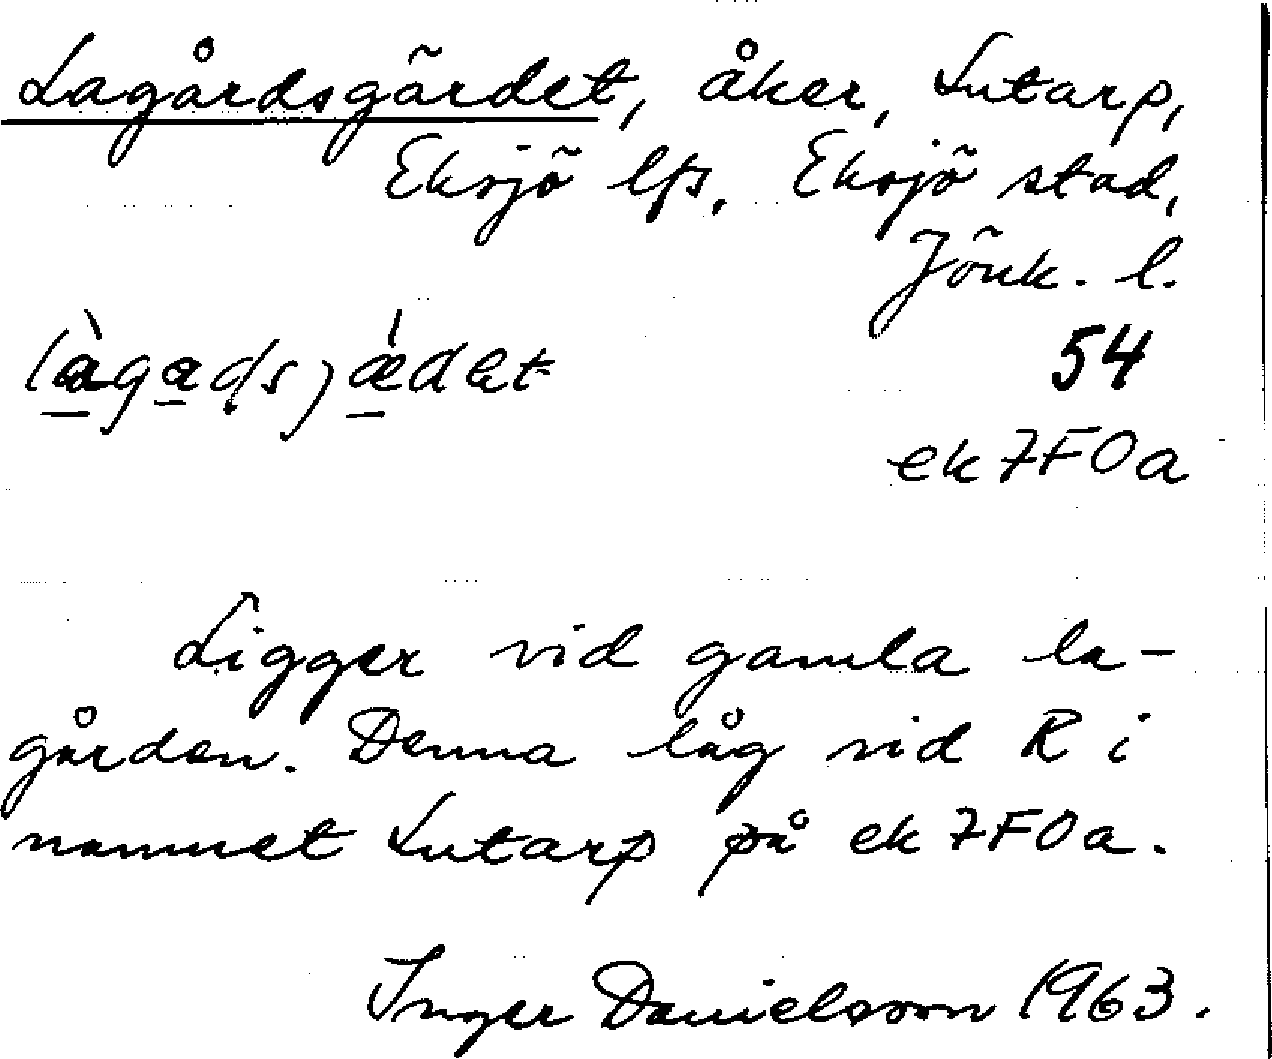 Lagårdsgärdet, åker, Lutarp,
Eksjö lfs, Eksjö stad,
Jönk. l.
54
ek 7F0a
Ligger vid gamla la-
gården. Denna låg vid R i
namnet Lutarp på ek 7F0a.
Inger Danielsson 1963.